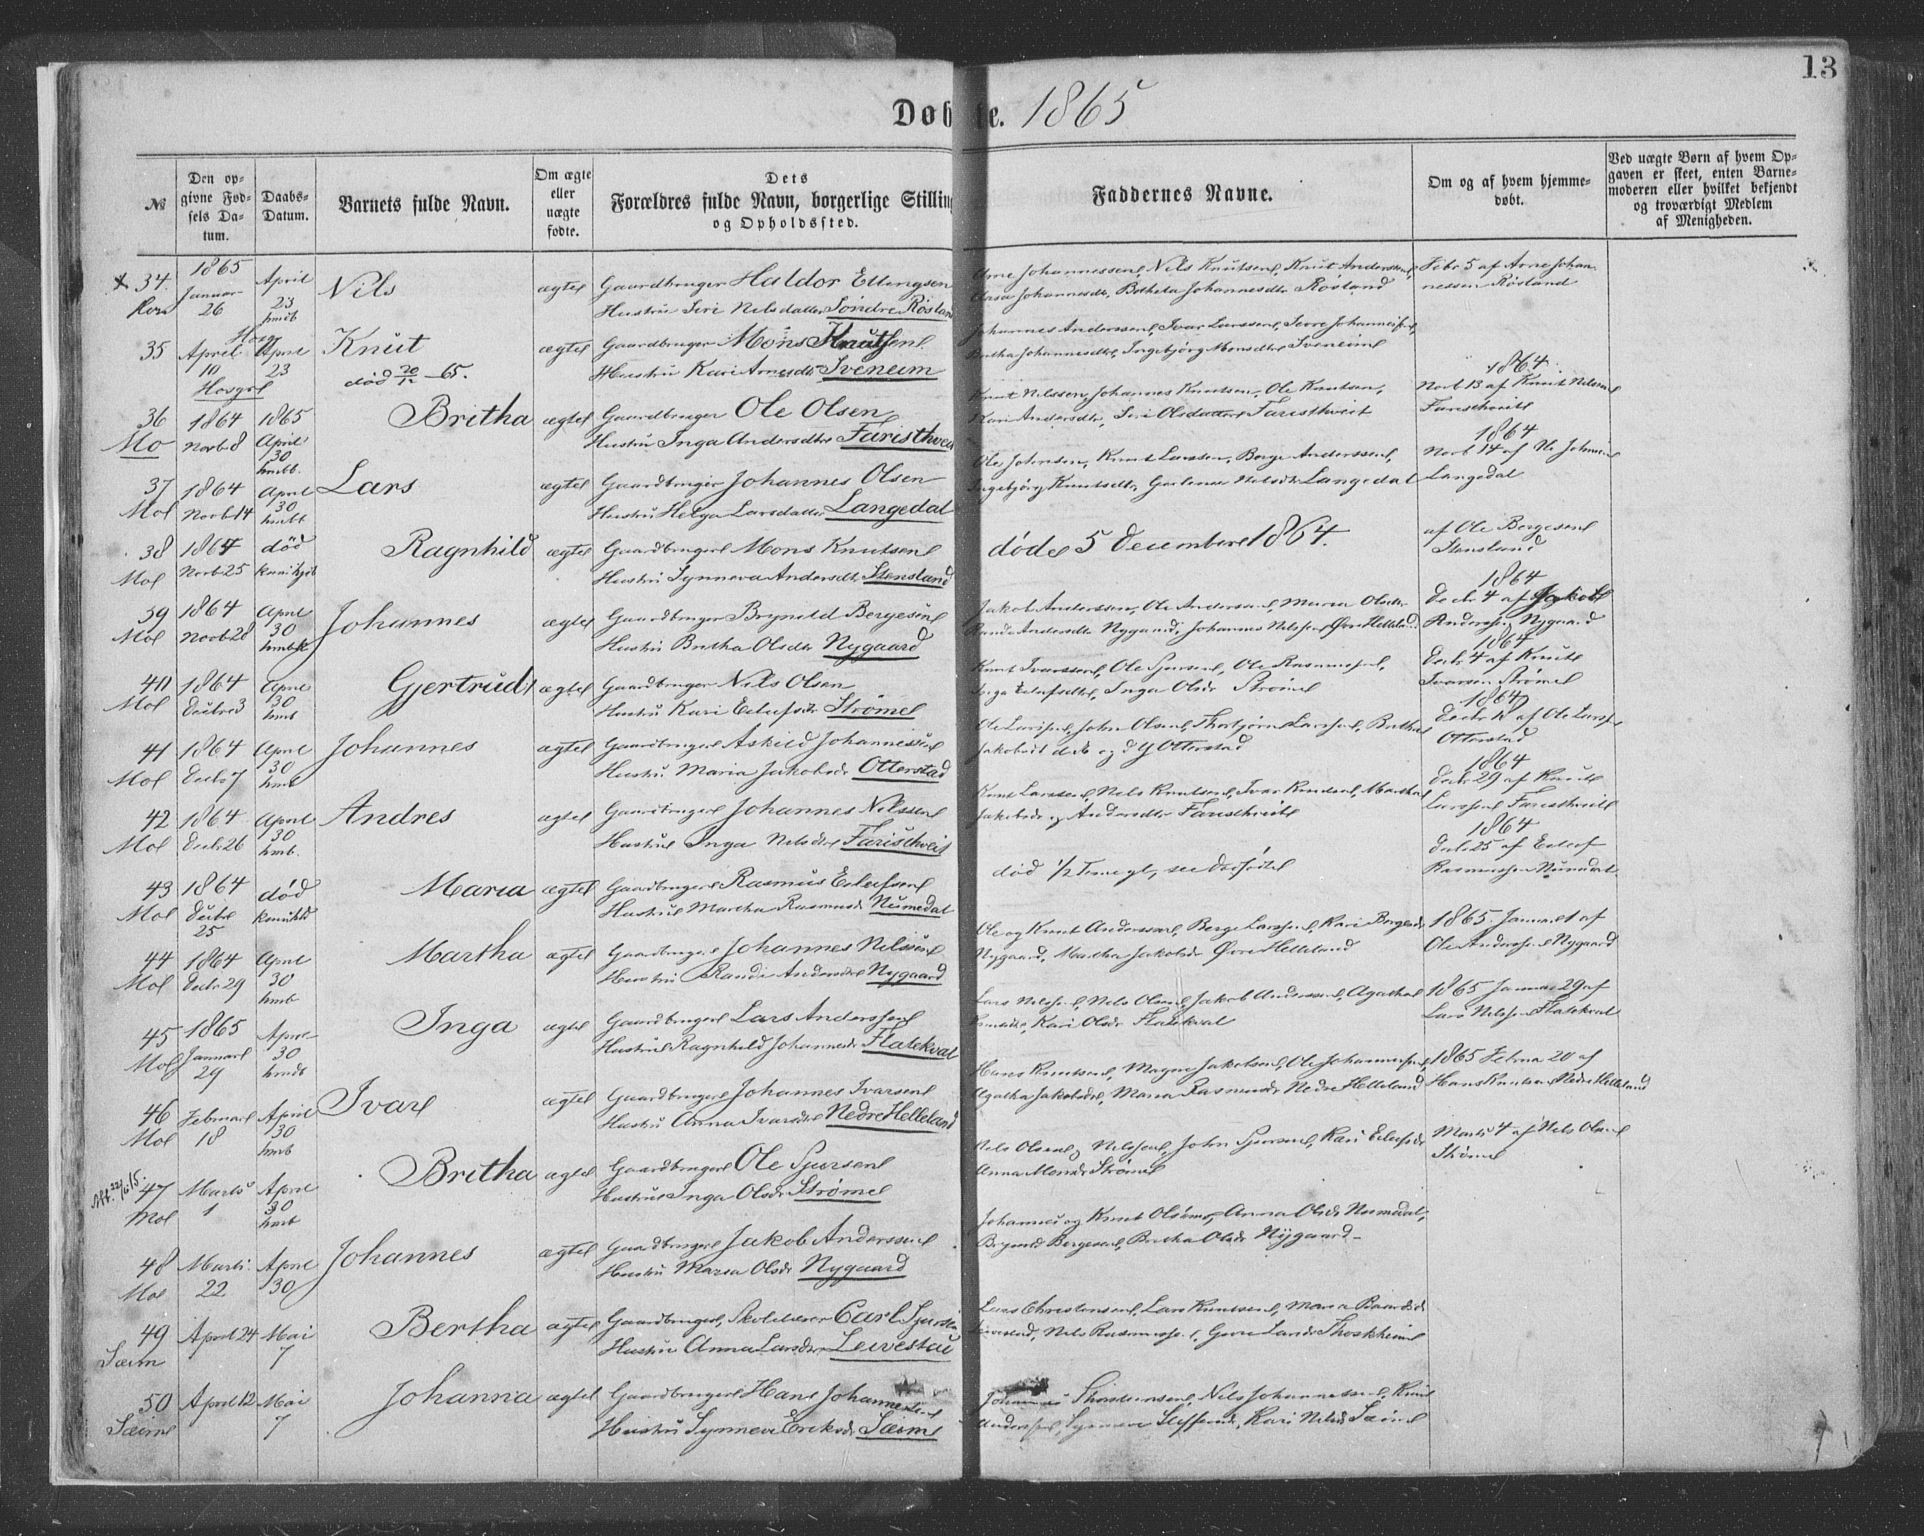 13
Døbte. 1865
№
Den opgivne Fødsels Datum.
Daabs-Datum.
Barnets fulde Navn.
Om ægte eller uægte fødte.
Dets Forældres fulde Navn, borgerlige Stilling og Opholdssted.
Faddernes Navne.
Om og af hvem hjemmedøbt.
Ved uægte Børn af hvem Opgaven er skeet, enten Barnemoderen eller hvilket bekjendt og troværdigt Medlem af Menigheden.
34. 1865 Januar 26 April 23 hmdb Nils ægte Gaardbruger Haldor Ellingsen
Hustru Siri Nilsdatter Søndre Røsland
Arne Johannessen, Nils Knutsen, Knut Andersen,
Johannesdtr, Johannesdtr Røsland
Febr 5 af Arne Johannessen Røsland
35 April 10 April 23 Knut ægte Gaardbruger Mons Knutsen
død 20/12 -65. Hustru Kari Arnesdtr Iveneim
Johannes Anderssen, Ivar Larssen, Johannes
Britha Johannesdtr, Ingebjørg Monsdtr Iveneim
36 1864 Novb 8 1865 April 30 hmdb. Britha ægte Gaardbruger Ole Olsen
Mo Hustru Inga Andersdtr Faristhveit
Knut Nilssen, Johannes Knutsen, Ole Knutsen,
Kari Andersdtr, Siri Olsdatter Faristhveit
1864 Novb 13 af Knut Nilssen
37 Mo 1864 Novb 14 April 30 hmdb Lars ægte Gaardbruger Johannes Olsen
Hustru Helga Larsdatter Langedal
Ole Johnsen, Knut Larssen, Børge Anderssen,
Ingebjørg Knutsdtr, Nilsdtr Langedal
1864 Novb 14 af Langedal
38 Mo 1864 Novb 25 død Ragnhild ægte Gaardbruger Mons Knutsen
Hustru Synneva Andersdtr Stensland
døde 5 December 1864.
af Ole Børgesen Stensland
39 Mo 1864 Novb 28 April 30 hmdb Johannes ægte Gaardbruger Brynild Børgesen
Hustru Britha Olsdtr Nygaard
Jakob Anderssen, Ole Anderssen, Maria Olsdtr
Andersdtr Nygaard, Johannes Nilssen Øvre Helleland
1864 Decbr 4 af Jakob Anderssen Nygaard
40 Mo 1864 Decbr 3 April 30 hmb Gjertrud ægte Gaardbruger Nils Olsen
Hustru Kari Eilefsdtr Strømel
Knut Ivarssen, Ole Sjursen, Ole Rasmussen,
Inga Eilefsdtr, Inga Olsdr Strømel
1864 Decbr 4 af Knut Ivarsen Strømel
41 Mo 1864 Decbr 7 April 30 hmb Johannes ægte Gaardbruger Askild Johannessen
Hustru Maria Jakobsdr Otterstad
Ole Larssen, John Olsen, Thorbjørn Larssen, Britha
Otterstad
1864 Decbr af Ole Larssen Otterstad
42 Mo 1864 Decbr 26 April 30 hmb. Andres ægte Gaardbruger Johannes Nilssen
Hustru Inga Nilsdtr Faristhveit
Knut Larssen, Nils Knutsen, Ivar Knutsen, Martha
Jakobsdr og Andersdtr Faristhveit
1864 Decbr 29 af Knut Larssen Faristhveit
43 Mo 1864 Decbr 25 død Maria ægte Gaardbruger Rasmus Eilefsen
Hustru Martha Rasmusdr Numedal
død 1/2 Time gl.
1864 Decbr 25 af Eilef Rasmussen Numedal
44 Mo 1864 Decbr 29 April 30 hmb Martha ægte Gaardbruger Johannes Nilssen
Hustru Randi Andersdtr Nygaard
Ole og Knut Anderssen, Børge Larssen, Kari Børgesdr
Nygaard, Martha Jakobsdr Øvre Helleland
1865 Januar 1 af Ole Anderssen Nygaard
45 Mo 1865 Januar 29 April 30 hmdb Inga ægte Gaardbruger Lars Anderssen
Hustru Ragnhild Johannesdr Flatekval
Lars Nilssen, Nils Olsen, Jakob Anderssen, Agatha
Knutsdtr, Kari Olsdr Flatekval
1865 Januar 29 af Lars Nilssen Flatekval
46 Mo Februar 18 April 30 hmb Ivar ægte Gaardbruger Johannes Ivarsen
Hustru Anna Ivarsdtr Nedre Helleland
Hans Knutsen, Magne Jakobsen, Ole Johannessen,
Agatha Jakobsdtr, Maria Rasmusdr Nedre Helleland
1865 Februar 20 af Hans Knutsen Nedre Helleland
47 Mo Marts 1 April 30 hmb Britha ægte Gaardbruger Ole Sjursen
Hustru Inga Olsdr Strømel
Nils Olsen, Nilssen, John Sjursen, Kari Eilefsdr
Anna Monsdr Strømel
Marts 4 af Nils Olsen Strømel
48 Mo Marts 22 April 30 Johannes ægte Gaardbruger Jakob Anderssen
Hustru Maria Olsdr Nygaard
Johannes og Knut Olsen, Anna Olsdr Numedal,
Brynild Børgesen, Britha Olsdr Nygaard
49 Sæim April 24 Mai 7 Bertha ægte Gaardbruger, Skolelærer Carl Sjursen
Hustru Anna Larsdtr Leivestad
Lars Christensen, Lars Knutsen, Maria Baardsdr
Nils Rasmussen,
50 Sæim April 12 Mai 7 Johanna ægte Gaardbruger Hans Johannessen
Hustru Synneve Eriksdr Sæim
Johannes Thorstensen, Nils Johannessen, Knut
Anderssen, Synneve Steffensdr, Kari Nilsdr Sæim